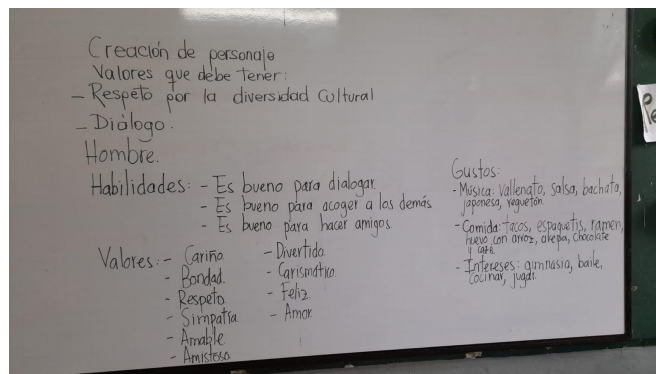 Creación de personaje
Valores que debe tener:
- Respeto por la diversidad Cultural
- Diálogo.
Hombre.
Habilidades: - Es bueno para dialogar.
- Es bueno para acoger a los demás
- Es bueno para hacer amigos.
Valores: - Cariño.
- Bondad.
- Respeto.
- Simpatía
- Amable
- Amistoso.
- Divertido.
- Carismático.
- Feliz.
- Amor.
Gustos:
- Música: Vallenato, salsa, bachata,
japonesa, reguetón.
- Comida: tacos, espaguetis, ramen,
huevo con arroz, arepa, chocolate
y café.
- Intereses: gimnasia, baile,
cocinar, jugar.